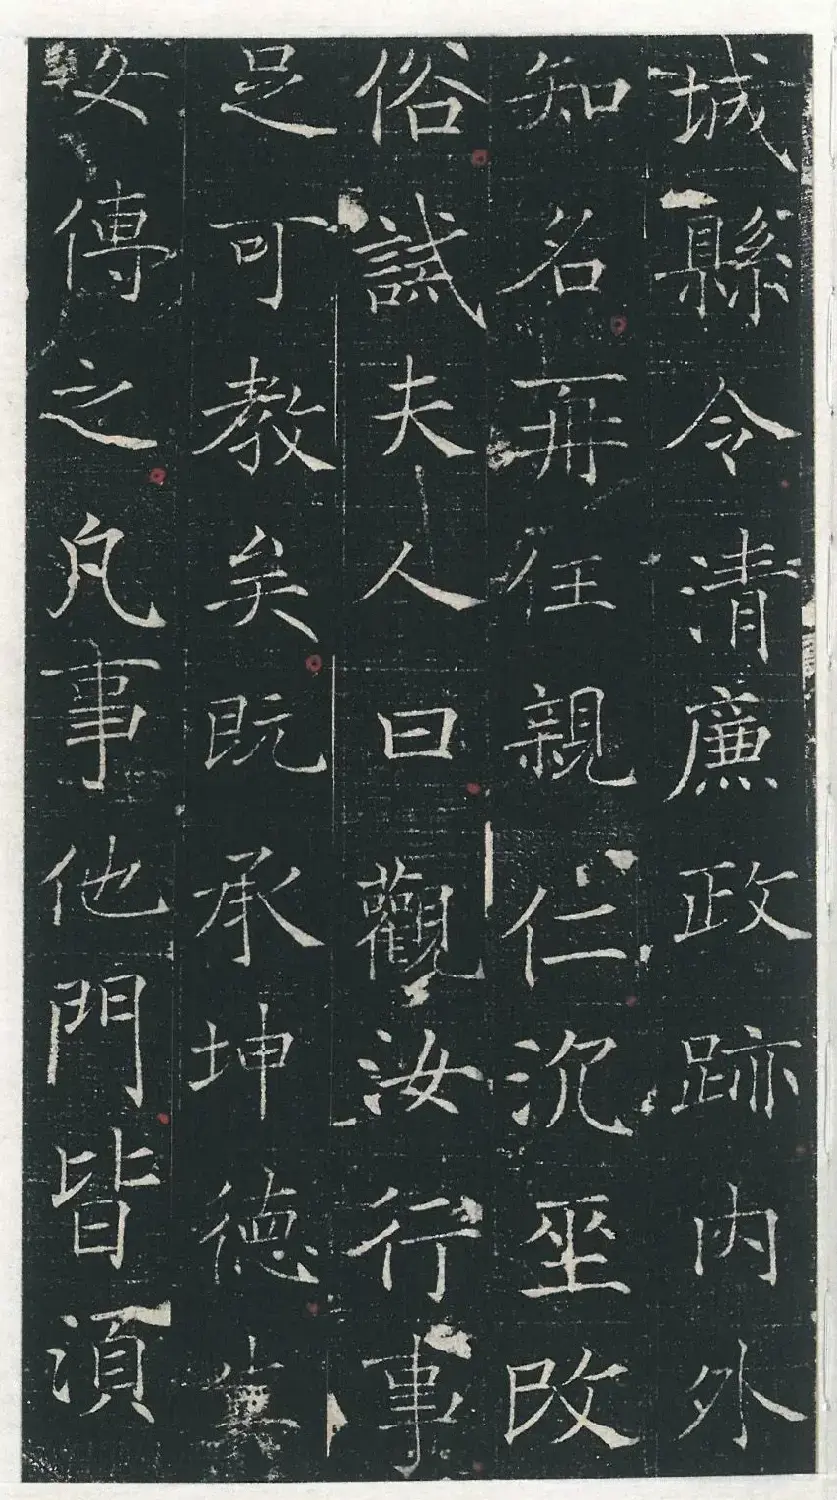 城縣令清廉政跡內外
知名再任親仁沉坐改
俗試夫人曰觀汝行事
足可教矣既承坤德冀
傳之凡事他門皆須